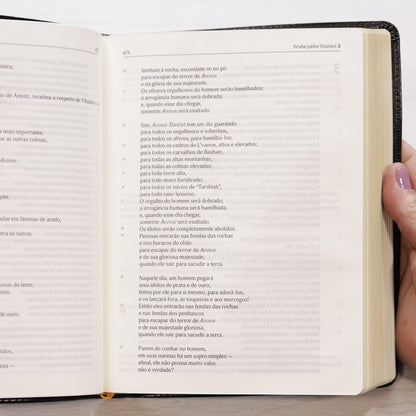 aísca;
de Amotz, recebeu a respeito de Y'hudah
mais importante:
as outras colinas,
Adonai,
im.
adas em lâminas de arado,
a as outras
esses do leste,
dos.
ouro,
s,
Adonai
475
Yesha'yahu (Isaías) 2
Venham à rocha, escondam-se no pó
para escapar do terror de Adonai
e da glória de sua majestade.
Os olhares orgulhosos do homem serão humilhados;
e arrogância humana será dobrada;
e, quando esse dia chegar,
somente Adonai será exaltado.
Sim, Adonai-Tzva'ot tem um dia guardado
para todos os orgulhosos e soberbos,
para todos os altivos, para humilhá-los;
para todos os cedros do L'vanon, altos e elevados;
para todos os carvalhos de Bashan;
para todas as altas montanhas;
para todas as colinas elevadas;
para toda torre alta,
para todo muro fortificado;
para todos os navios de "Tarshish",
para todo vaso luxuoso.
O orgulho do homem será dobrado,
a arrogância humana será humilhada,
e, quando esse dia chegar,
somente Adonai será exaltado.
Os ídolos serão completamente abolidos.
Pessoas entrarão nas fendas das rochas
e nos buracos do chão
para escapar do terror de Adonai
e de sua majestade gloriosa,
quando ele sair para sacudir a terra.
Naquele dia, um homem pegará
seus ídolos de prata e de ouro,
feitos por ele para si mesmo, para adorá-los,
e os lançará fora, às toupeiras e aos morcegos!
Então eles entrarão nas fendas das rochas
e nas fendas dos penhascos
para escapar do terror de Adonai
e de sua majestade gloriosa,
quando ele sair para sacudir a terra.
Parem de confiar no homem,
em suas narinas há um sopro tamples —
afinal, ele não possui muito valor,
não é verdade?